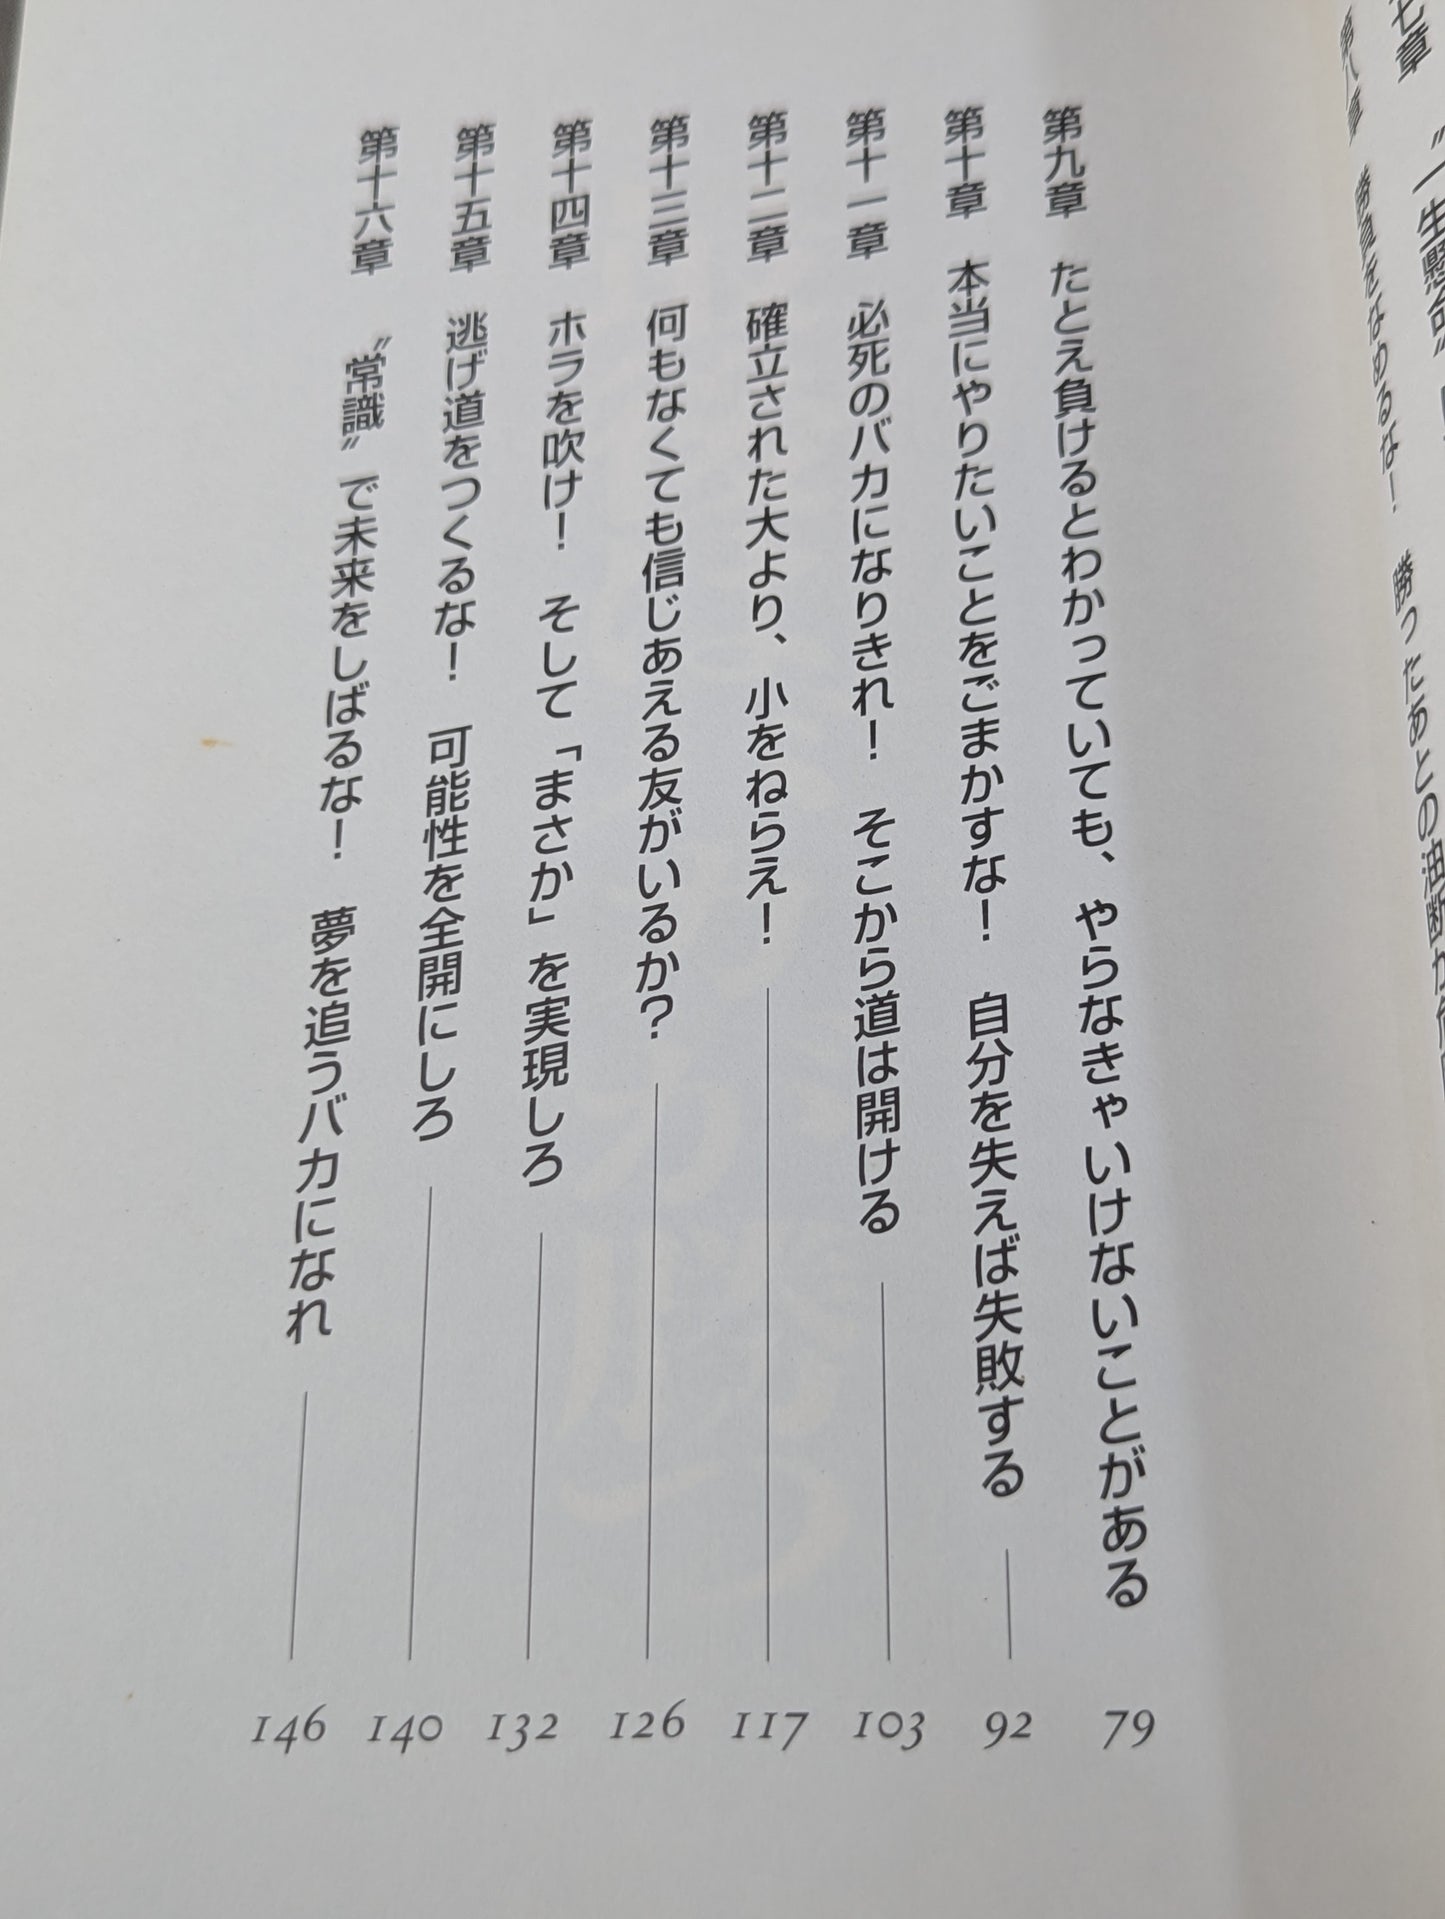 七章 〝一生懸命〟
第八章 勝負をなめるな！ 勝ったあとの油断が
第九章 たとえ負けるとわかっていても、やらなきゃいけないことがある 79
第十章 本当にやりたいことをごまかすな！ 自分を失えば失敗する 92
第十一章 必死のバカになりきれ！ そこから道は開ける 103
第十二章 確立された大より、小をねらえ！ 117
第十三章 何もなくても信じあえる友がいるか？ 126
第十四章 ホラを吹け！ そして「まさか」を実現しろ 132
第十五章 逃げ道をつくるな！ 可能性を全開にしろ 140
第十六章 〝常識〟で未来をしばるな！ 夢を追うバカになれ 146